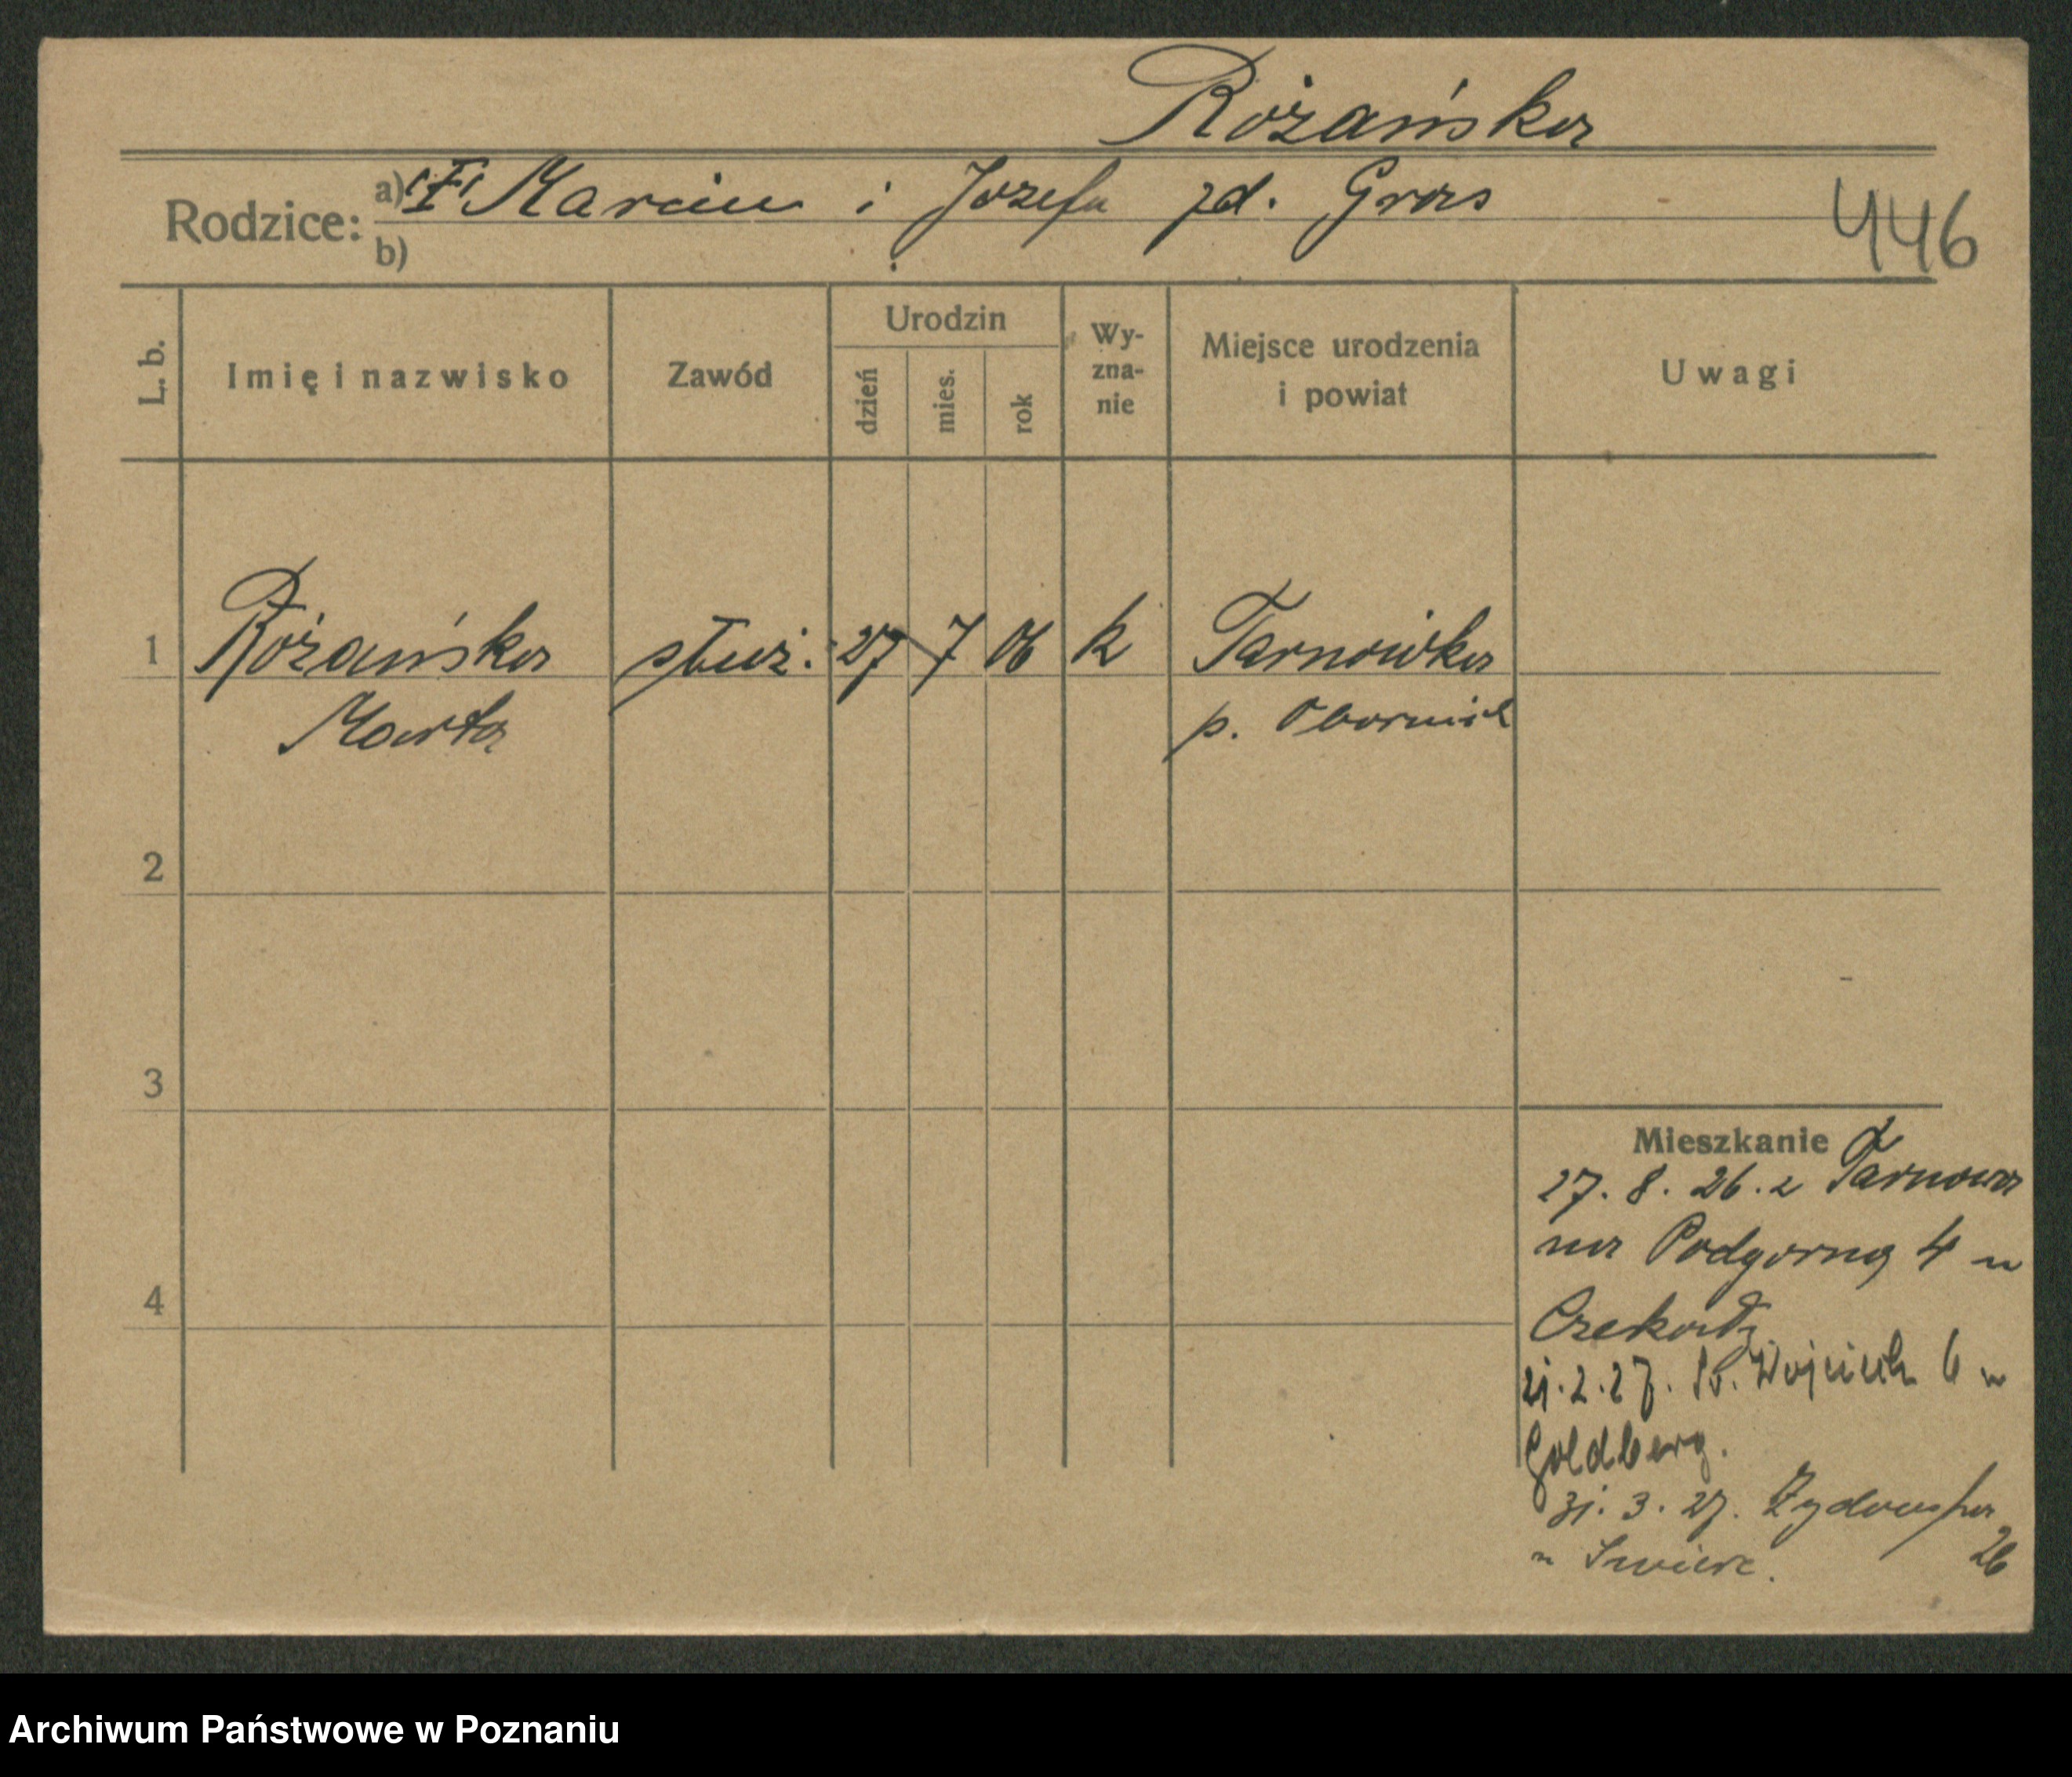 Różańska
Rodzice: a) Marcin i Józefa zd. Gras
b)
446
L. b. Imię i nazwisko Zawód Urodzin dzień mies. rok Wy-zna-nie Miejsce urodzenia i powiat Uwagi
1 Różańska służ. 27 7 06 k Tarnówka
Marta p. Obornik
2
3
Mieszkanie
27. 8. 26. z Tarnowa
na Podgórną 4 u
4
21. 2. 27. Św. Wojciech 6 u
Goldberg.
31. 3. 27. Żydowska
26
u
Archiwum Państwowe w Poznaniu